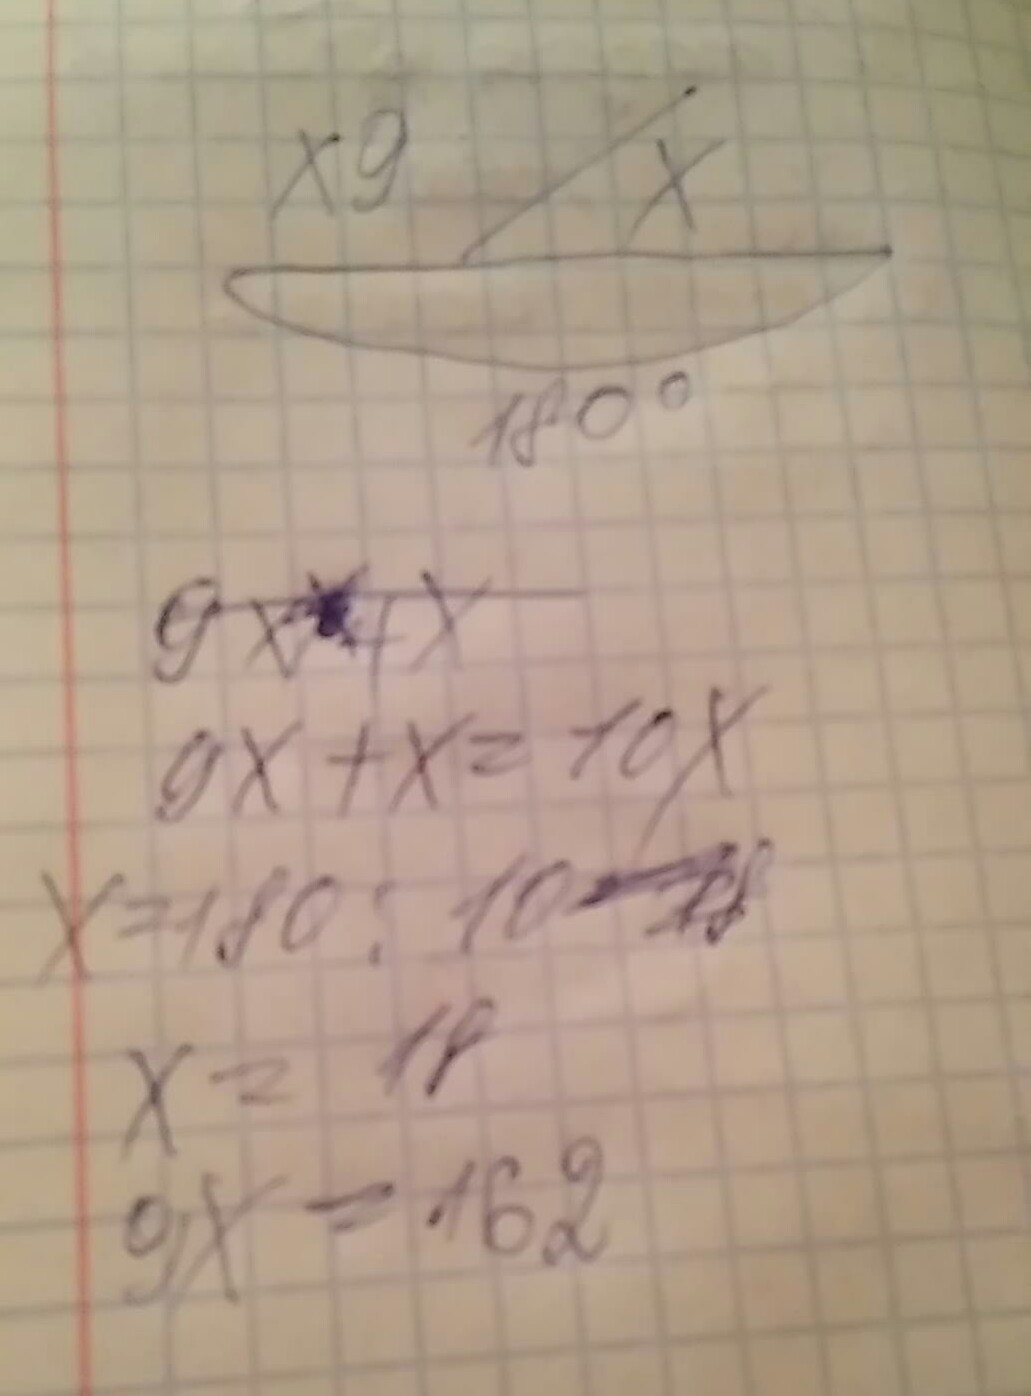 x9 x
180°
9x + x
9x + x = 10x
x = 180 : 10 = 18
x = 18
9x = 162